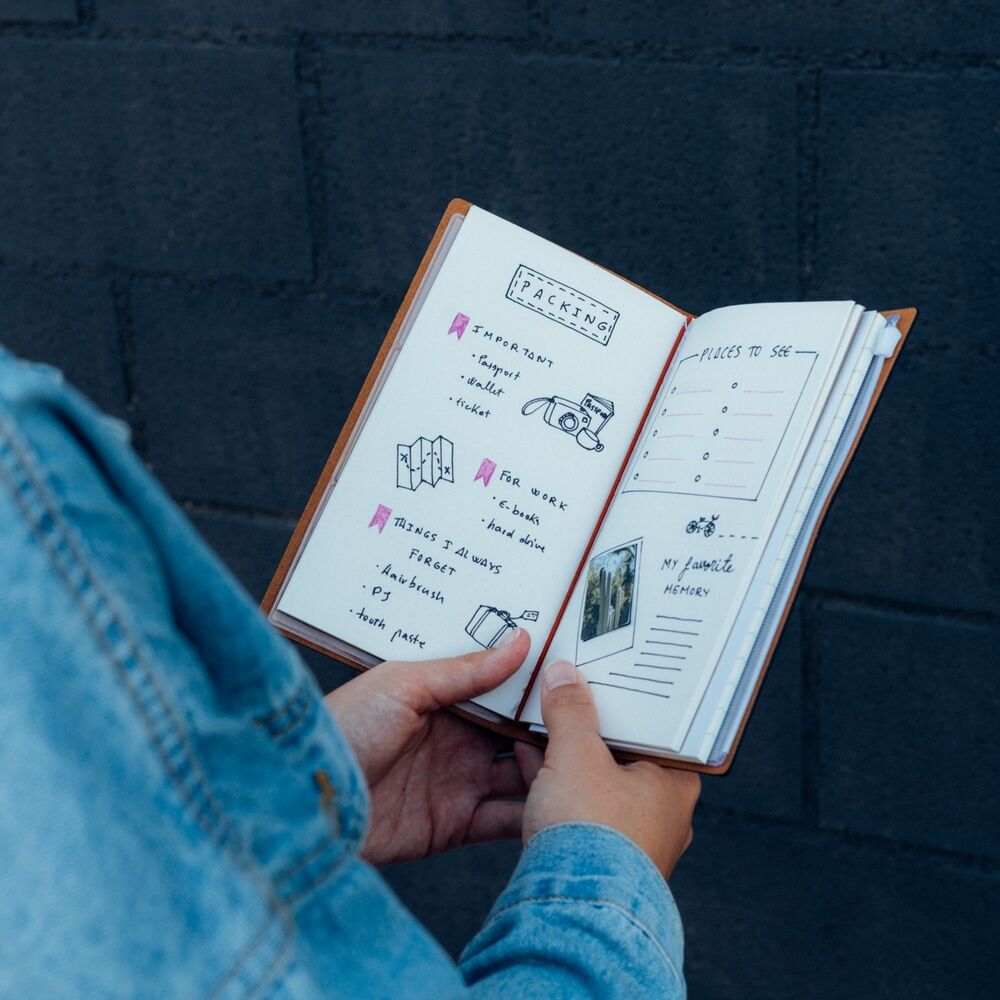 PACKING
IMPORTANT
• Passport
• wallet
• ticket
PASSPORT
FOR WORK
• E-books
• hard drive
THINGS I ALWAYS
FORGET
• Hairbrush
• PJ
• tooth paste
PLACES TO SEE
MY favorite
MEMORY